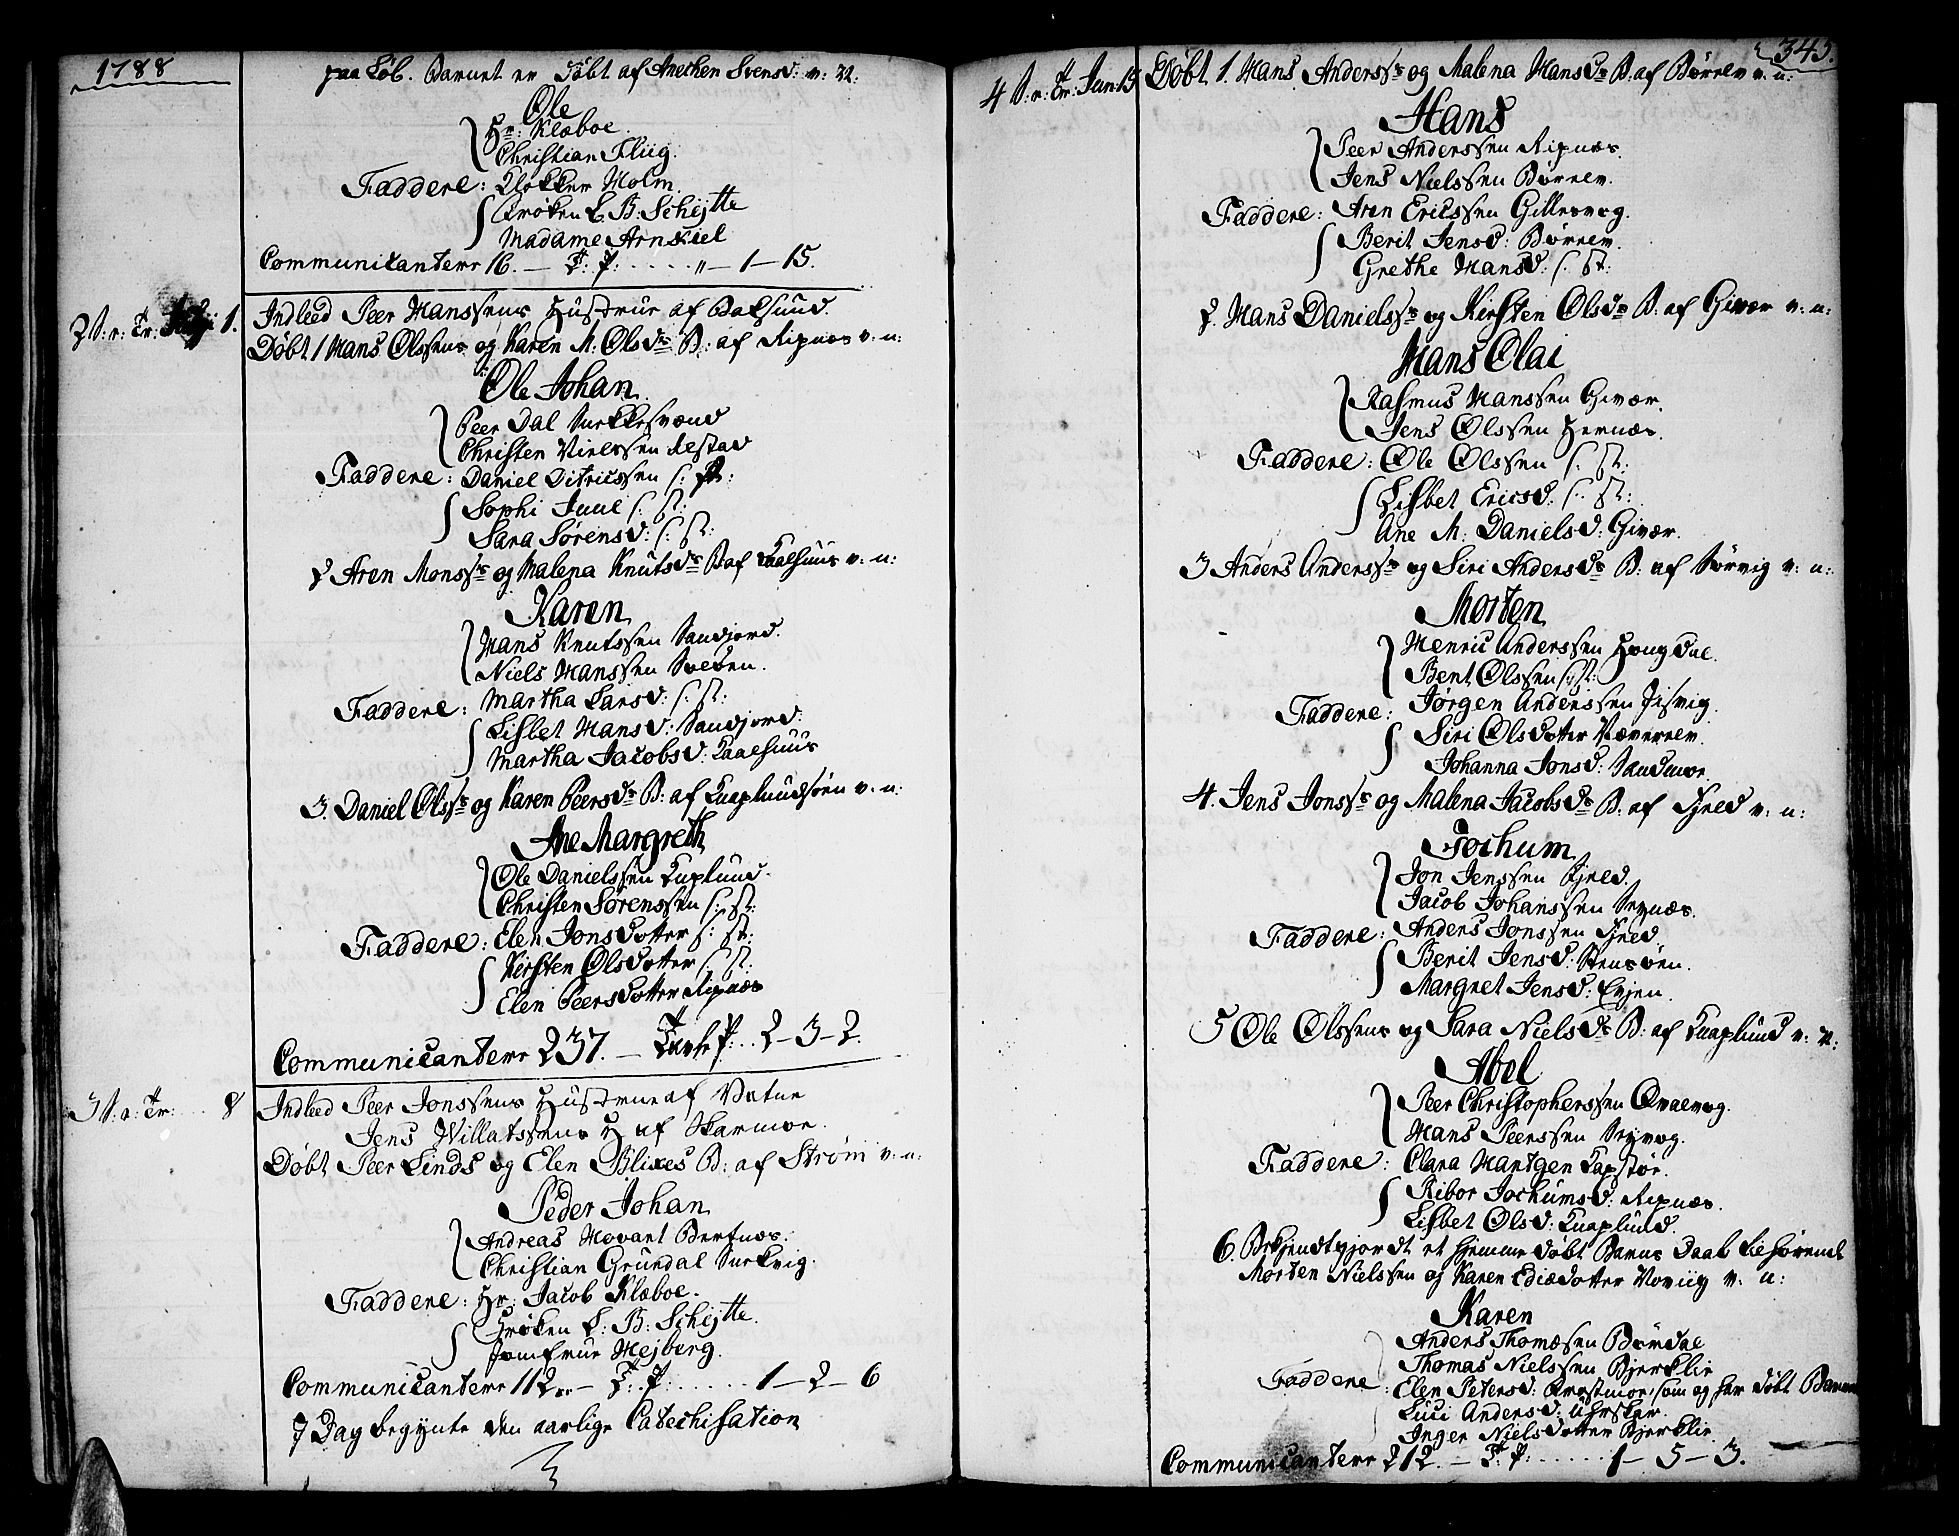 1788
paa Løb. Barnet er Døbt af Anethen Svensd: v: n:
Ole
Hr: Klæboe.
Christian Fliig.
Faddere: Klokker Holm.
Frøken L. B: Scheitte
Madame Arnkiel
Communicantere 16. — T: P: .... " — 1 — 15.
2 S: e: Tr: 1.
Indleed Peer Hanssens Hustrue af Balsund.
Døbt 1 Hans Olssens og Karen M: Olsds B: af Ripnæs v: n:
Ole Johan
Peer Dal Snekkesvend
Christen Nielssen Alstad
Faddere: Daniel Ditricssen s: st:
Sophi Juul s: st:
Sara Sørensd: s: st:
2 Aren Monss: og Malena Knutsds B af Kaalhuus v: n:
Karen
Hans Knutssen Sandjord.
Niels Hanssen
Faddere: Martha Larsd: s: st:
Lisbet Hansd: Sandjord.
Martha Jacobsd: Kaalhuus
3. Daniel Olss: og Karen Peersds B: af v: n:
Ane Margreth
Ole Danielssen Kaplund.
Christen Sørenssen s: st:
Faddere: Elen Jonsdotter s: st:
Kirsten Olsdotter s: st:
Elen Peersdotter Ripnæs
Communicantere 237. — Tavle P: .. 2 — 3 — 2.
3 S: e: Tr: ... 8
Indleed Peer Jonssens Hustrue af Vatne
Jens Willatssens H af Skarmoe.
Døbt Peer Linds og Elen Blixes B: af Strøm v: n:
Peder Johan
Andreas Hovant Bertnæs.
Christian Gründal Snekvig.
Faddere: Hr: Jacob Klæboe.
Frøken L: B: Scheitte.
Jomfrue Hejberg.
Communicantere 112.. — T: P: ...... 1 — 2 — 6
7 Dag begynte den aarlige Catechisation
345.
4 S: e: Tr: Jun: 15
Døbt 1. Hans Anderss: og Malena Hansds B. af Børrelv v: n:
Hans
Peer Anderssen Ripnæs.
Jens Nielssen Børrelv.
Faddere: Aren Ericssen Gillesvog.
Berit Jensd: Børrelv.
Grethe Hansd: s: st:
2. Hans Danielss: og Kirsten Olsds B: af Givær v: n:
Hans Olai
Rasmus Hanssen Givær.
Jens Olssen Hernæs.
Faddere: Ole Olssen s: st:
Lisbet Ericsd: s: st:
Ane M: Danielsd: Givær.
3 Anders Anderss: og Siri Andersds B: af Sørvig v: n:
Morten
Henric Anderssen
Bent Olssen s: st:
Faddere: Jørgen Anderssen
Siri Olsdotter Væverelv.
Johanna Jonsd: Sandmoe.
4. Jens Jonss: og Malena Jacobsds B. af Fjeld v: n:
Jochum
Jon Jenssen Fjeld.
Jacob Johanssen Seynæs.
Faddere: Anders Jonssen Fjeld
Berit Jensd: Stensøen.
Margret Jensd: Evjen.
5 Ole Olssens og Sara Nielsds B: af Kaaplund v: n:
Abel
Peer Christopherssen Qvalvog.
Hans Peerssen Seyvog.
Faddere: Clara Hantgen Kapstør.
Ribor Jochumsd: Ripnæs.
Lisbet Olsd: Kaaplund.
6. Bekjendtgjordt et hiemme døbt Barns Daab tilhørende
Morten Nielssen og Karen Ediædotter v: n:
Karen
Anders Thomæsen Børdal
Thomas Nielssen Bjerklie
Faddere: Elen Petersd: Qvastmoe, som og har døbt Barnet
Luci Andersd:
Inger Nielsdotter Bjerklie
Communicantere 212. — T: P: ..... 1 — 5 — 3.